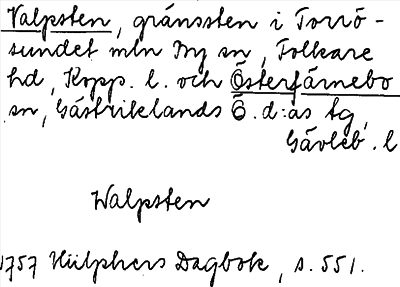 Valpsten, gränssten i Torrö-
sundet mln By sn, Folkare
hd, Kopp. l. och Österfärnebo
sn, Gästriklands Ö. d:as tg,
Gävleb. l
Walpsten
1757 Hülphers Dagbok, s. 551.